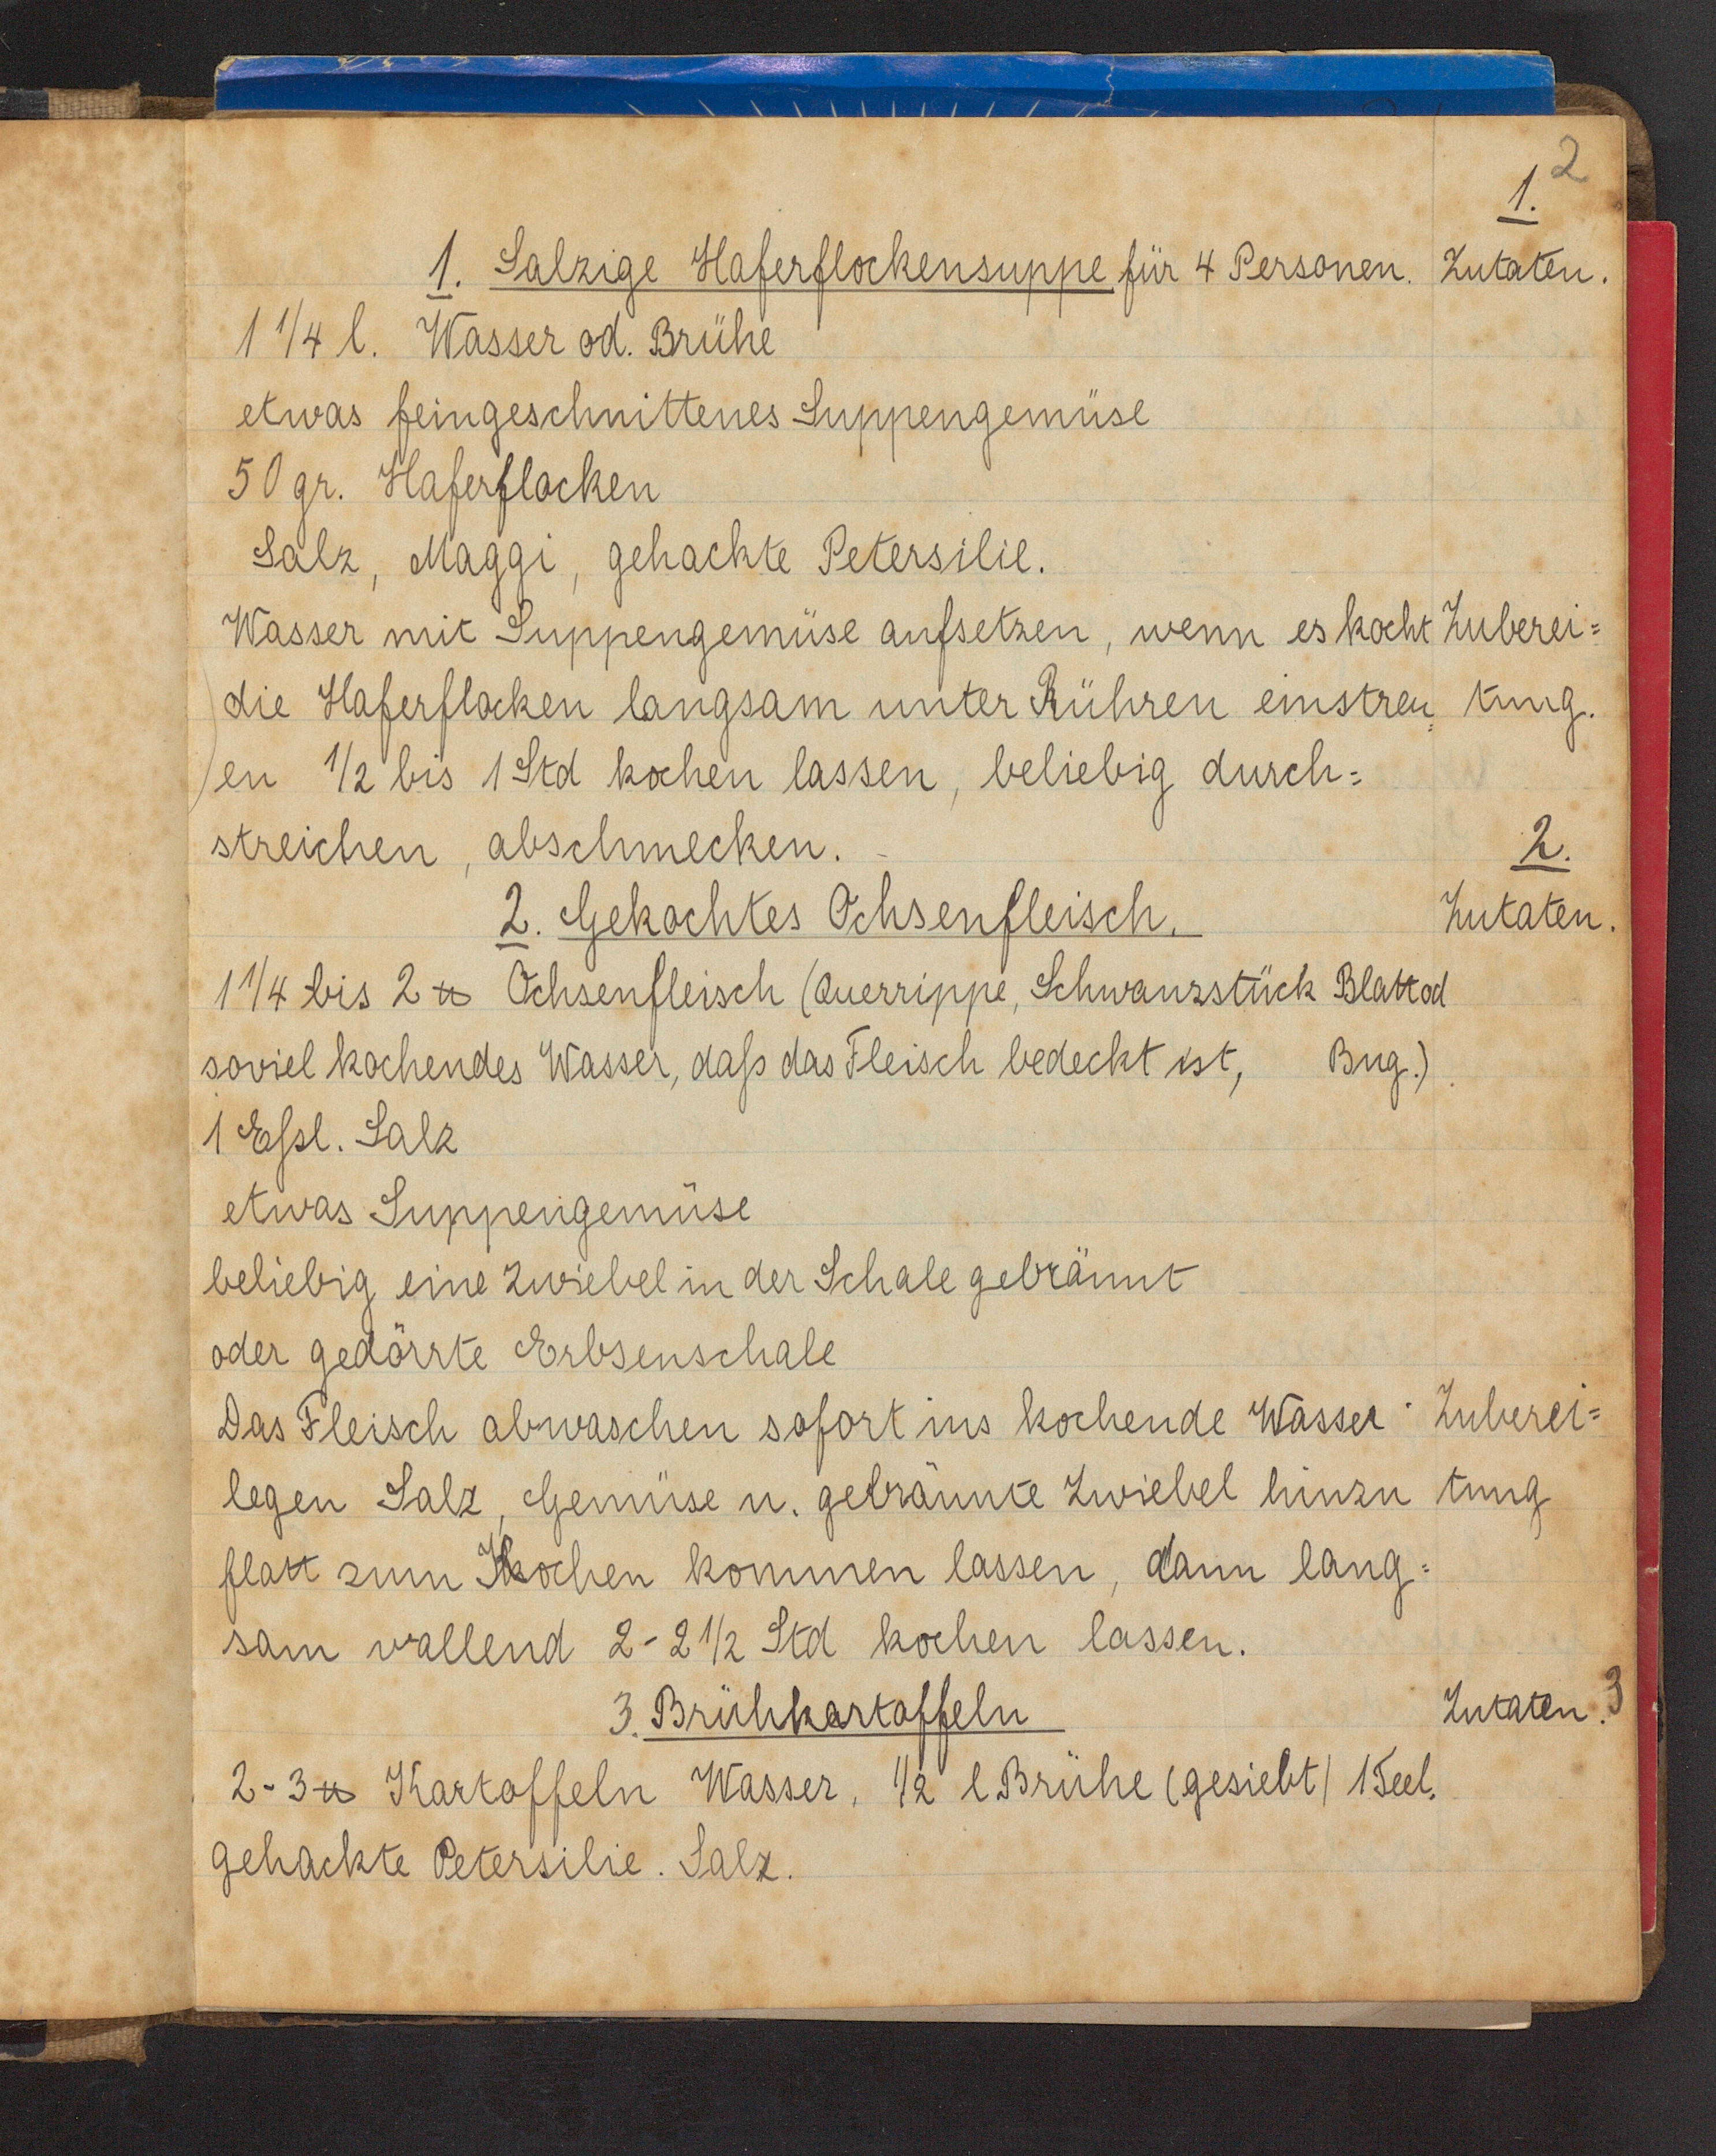 2
1.
1. Salzige Haferflockensuppe für 4 Personen. Zutaten.
1 1/4 l. Wasser od. Brühe
etwas feingeschnittenes Suppengemüse
50 gr. Haferflocken
Salz, Maggi, gehackte Petersilie.
Wasser mit Suppengemüse aufsetzen, wenn es kocht Zuberei=
die Haferflocken langsam unter Rühren einstreu= tung.
en 1/2 bis 1 Std kochen lassen, beliebig durch=
streichen, abschmecken.
2.
2. Gekochtes Ochsenfleisch. Zutaten.
1 1/4 bis 2 ℔ Ochsenfleisch (Querrippe, Schwanzstück Blatt od
soviel kochendes Wasser, daß das Fleisch bedeckt ist, Bug.)
1 Eßl. Salz
etwas Suppengemüse
beliebig eine Zwiebel in der Schale gebräunt
oder gedörrte Erbsenschale
Das Fleisch abwaschen sofort ins kochende Wasser Zuberei=
legen Salz, Gemüse u. gebräunte Zwiebel hinzu tung
flott zum Kochen kommen lassen, dann lang=
sam wallend 2-2 1/2 Std kochen lassen.
3. Brühkartoffeln Zutaten. 3
2-3 ℔ Kartoffeln Wasser, 1/2 l Brühe (gesiebt) 1 Teel.
gehackte Petersilie. Salz.